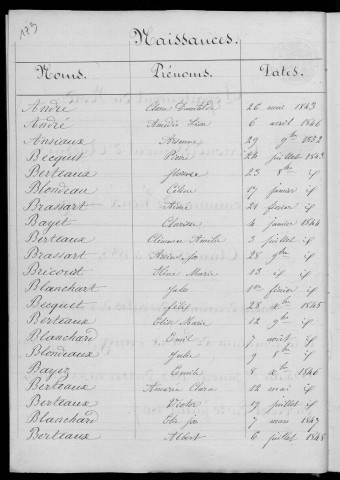 173
Naissances.
Noms. Prénoms. Dates.
André Clara Domitilde 26 mai 1843
André Amédée Léon 6 avril 1846
Ansiaux Arsenne 29 9bre 1852
Becquet Pierre 24 juillet 1843
Berteaux florence 23 8bre if
Blondeau Céline 17 janvier if
Brassart André 21 février if
Bayet Clarisse 4 janvier 1844
Berteaux Clémence Amélie 3 juillet if
Brassart 28 9bre if
Bricout Marie 13 if if
Blanchart Jules 1er février if
Becquet félix 28 xbre 1845
Berteaux Elise Marie 12 9bre if
Blanchard Emil 7 août if
Blondeaux Julie 9 8bre if
Bayez Emile 8 xbre 1846
Berteaux Amarie Clara 12 mai if
Berteaux Victor 19 juillet if
Blanchard 7 mars 1847
Berteaux Albert 6 juillet 1848